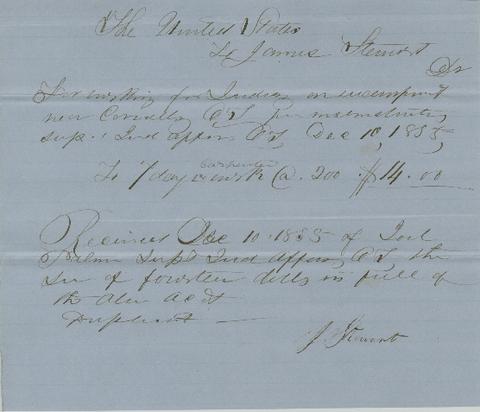 The United States
To James Stewart
Dr
For working for Indian on encampment
near Corvallis O.T. per instructions
Supt Ind Affairs O.T. Dec 10, 1855,
carpenter
To 7 days work @ 200 $14.00
Received Dec 10 1855 of Joel
Palmer Supt Ind Affairs O.T. the
Sum of fourteen dolls in full of
the abov acct
Duplicat
J. Stewart